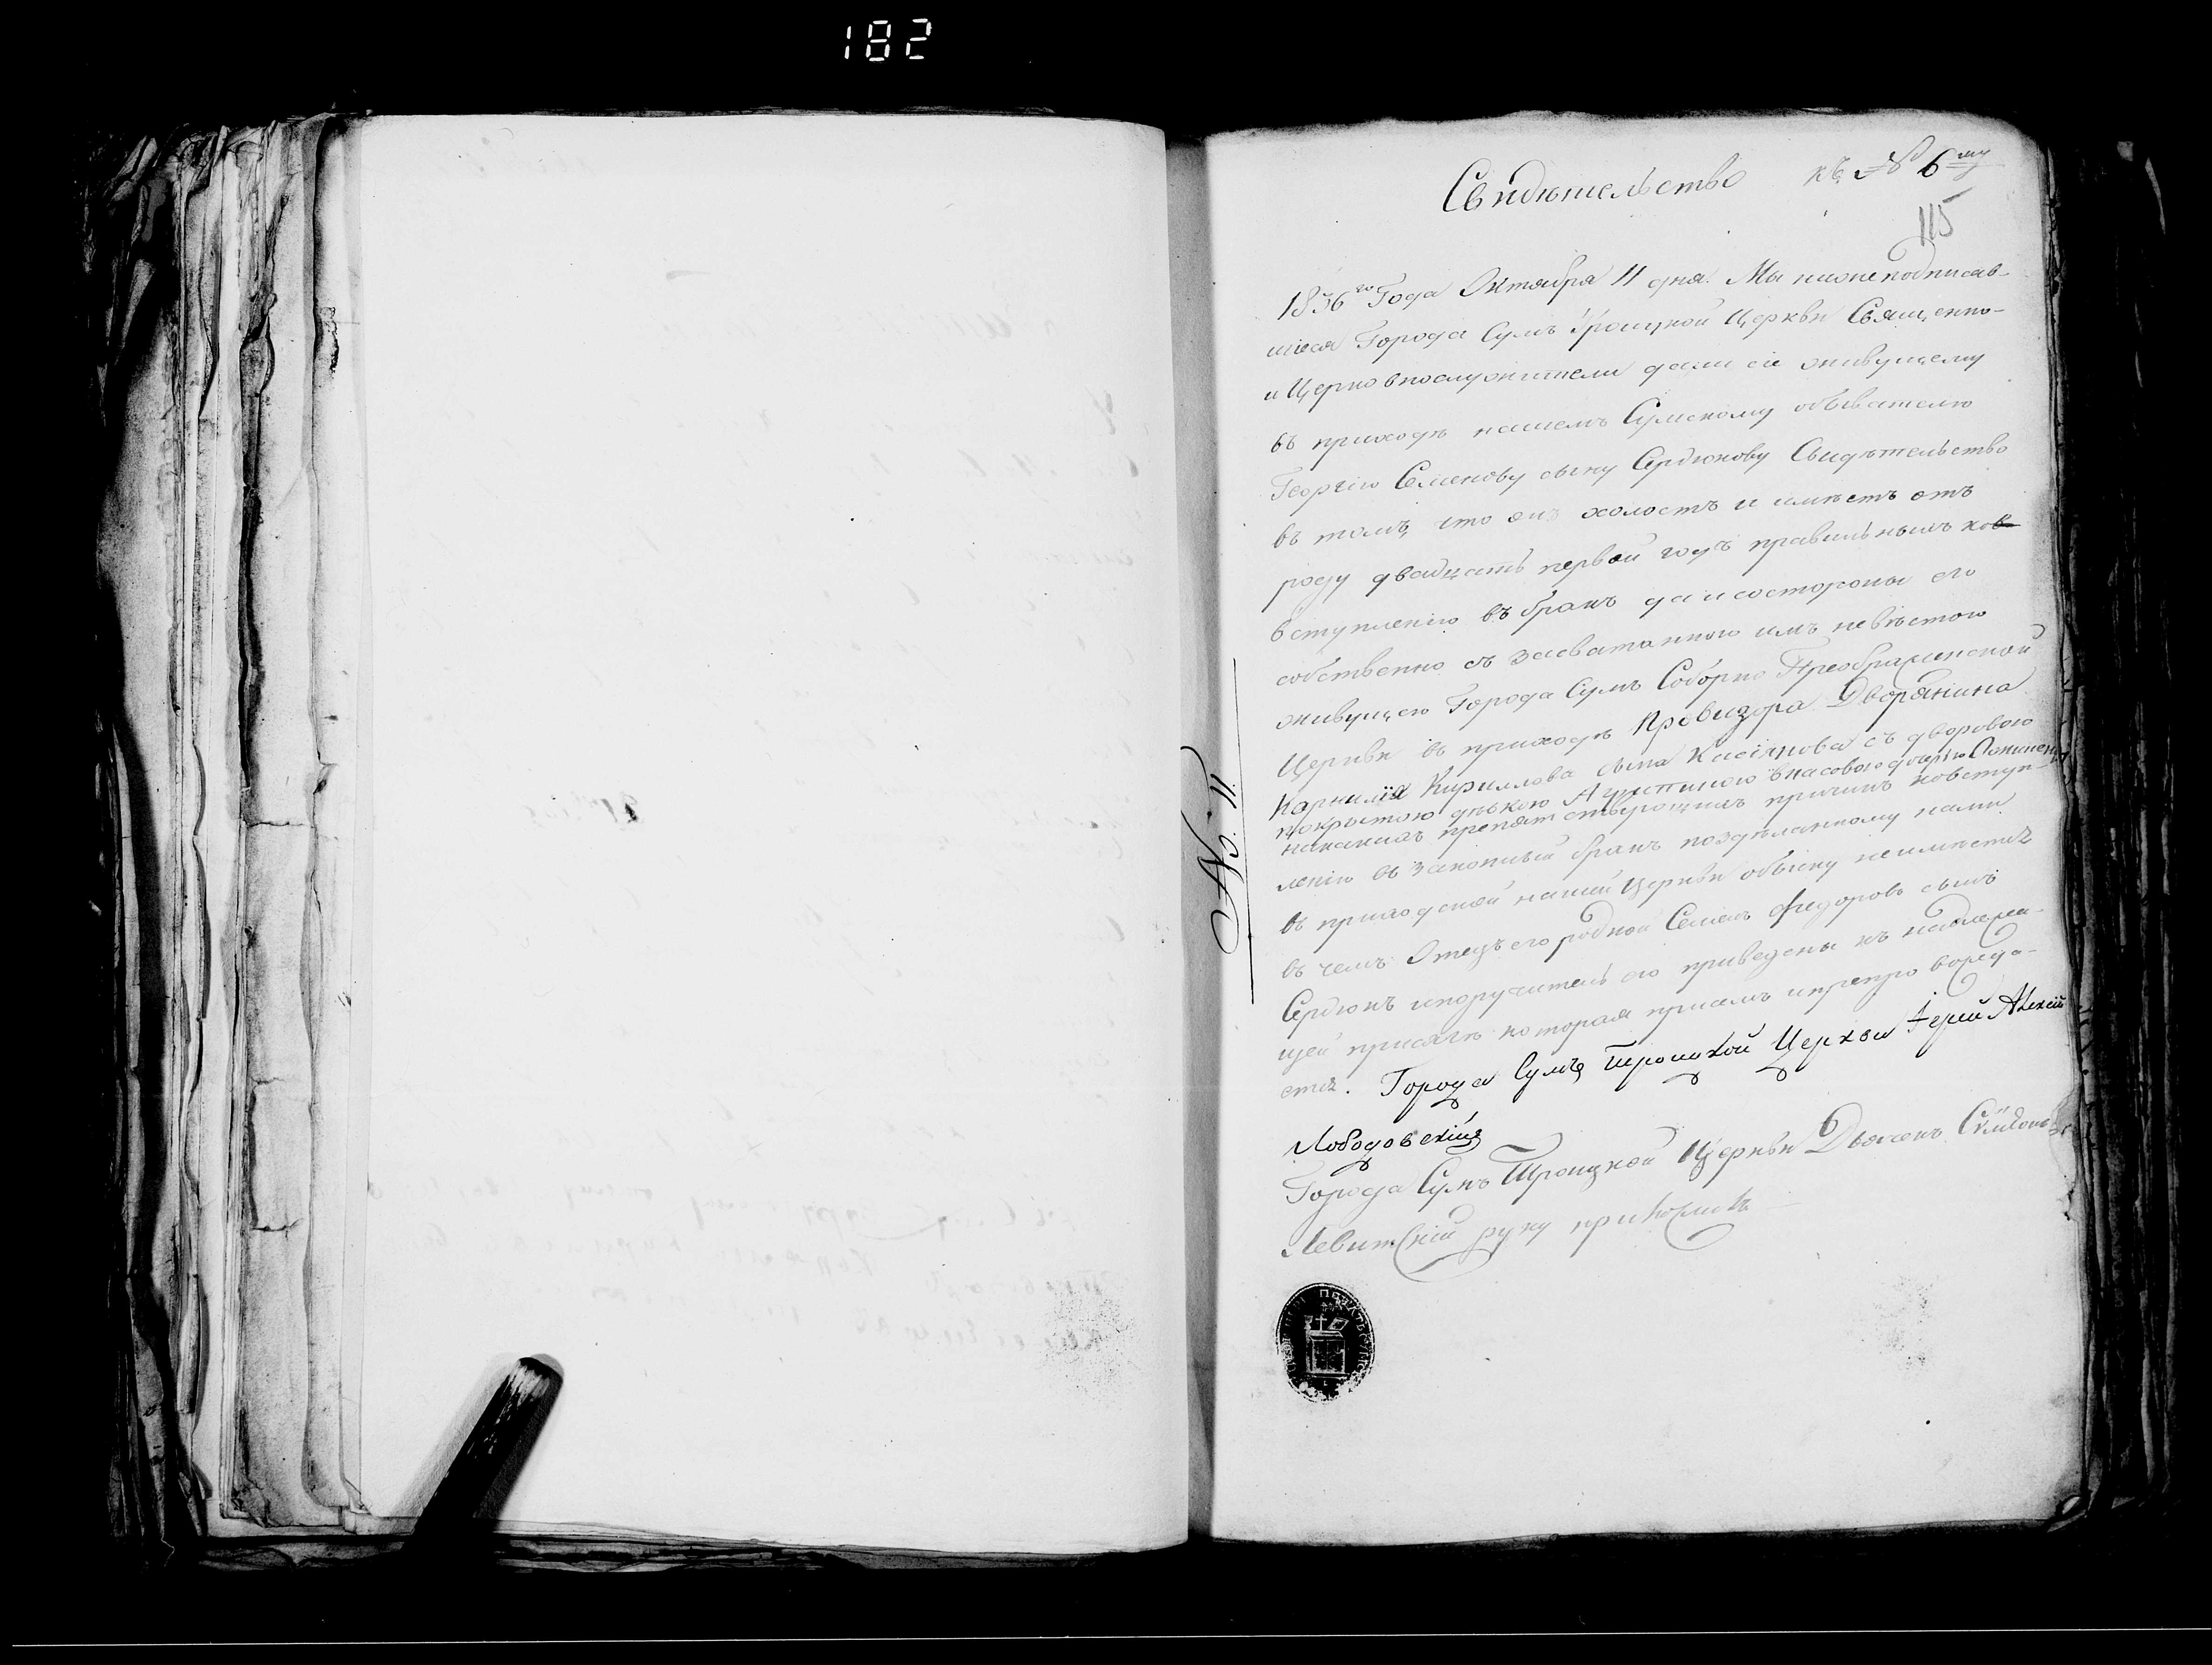 182
Свидѣтельство къ № 6му
115
1836го Года Октября 11 дня. Мы нижеподписав-
шіеся Города Сумъ Троицкой Церкви Священно-
и Церковнослужители дали сіе живущему
въ приходѣ нашемъ Сумскому обывателю
Георгію Семенову сыну Сердюкову Свидѣтельство
въ томъ, что онъ холостъ и имѣетъ отъ
роду двадцать первой годъ правильнымъ ко
вступленію въ бракъ да и состороны его
собственно съ засватанною имъ невѣстою
живущею Города Сумъ Соборно Преображенской
Церкви въ приходѣ Провизора Дворянина
Карнилія Кирилова сына Касіянова съ дворовою
покрыткою дѣвкою Агриппиною дочерью
никакихъ препятствующихъ причинъ ковступ-
ленію въ законный бракъ поздѣланному нами
въ приходской нашей Церкви обыску неимѣется
въ чемъ Отецъ его родной Семенъ Федоровъ сынъ
Сердюкъ ипоручитель его приведены къ надлежа-
щей присягѣ которая присемъ ипрепровожда-
ется. Города Сумъ Троицкой Церкви Іерей Алексій
Лободовскій
Города Сумъ Троицкой Церкви Дьячекъ
Левитскій руку приложилъ
№. 11.